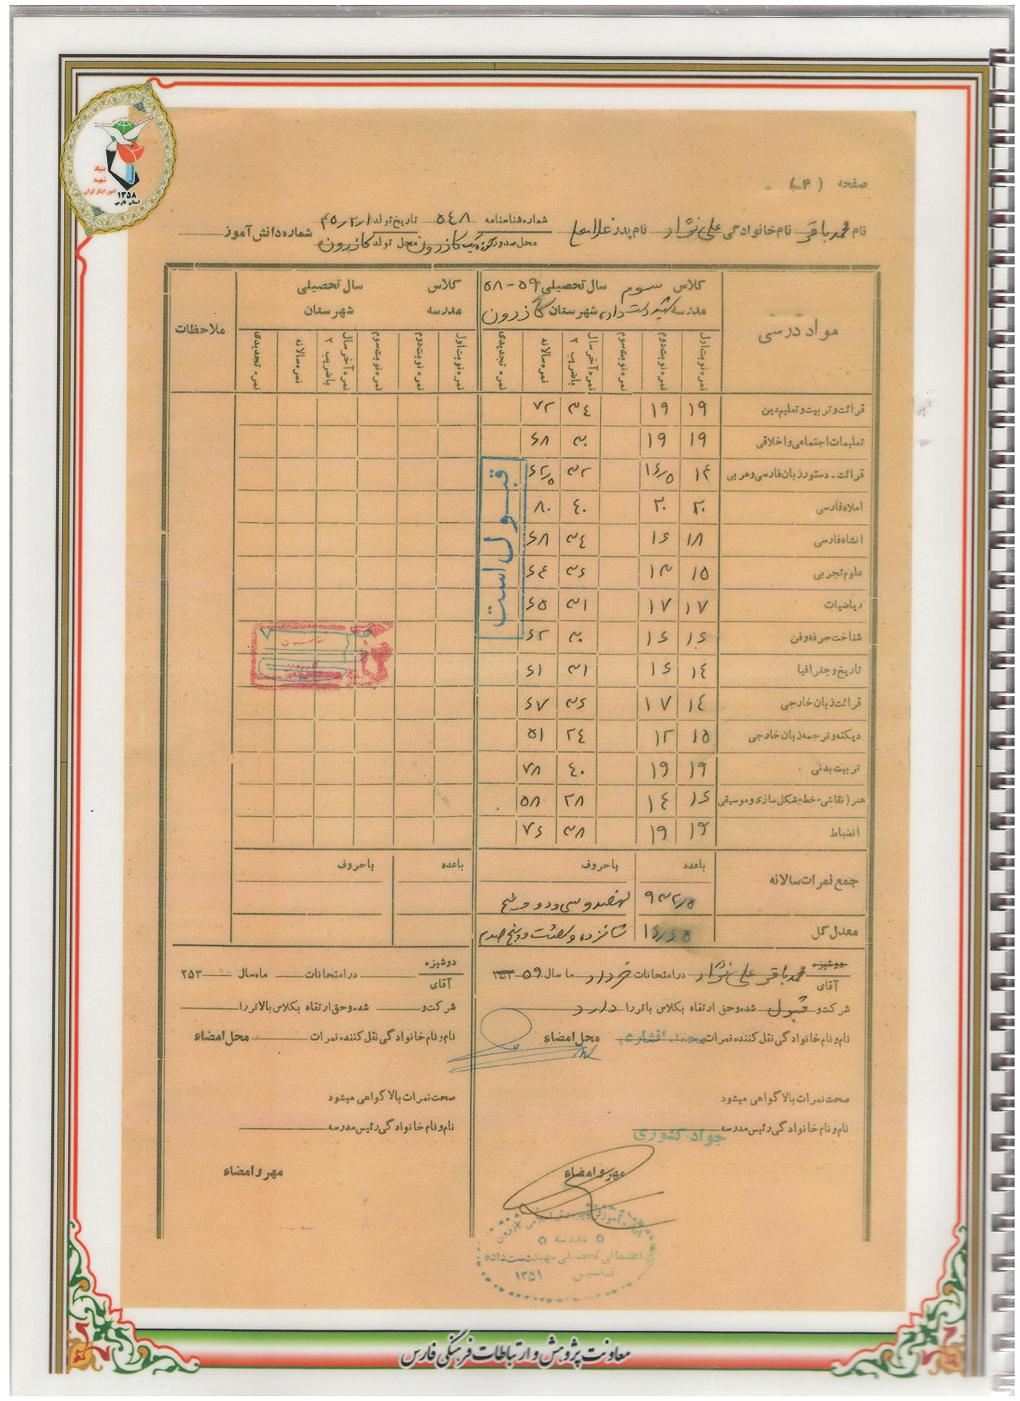 بنیاد
شهید
امور ایثارگران
۱۳۵۸
استان فارس
صفحه (۳)
نام محمد باقر نام خانوادگی علی نژاد نام پدر غلامعلی شماره شناسنامه ۵۴۸ تاریخ تولد ۴۵/۲/۱ شماره دانش آموز
محل صدور کازرون محل تولد کازرون
مواد درسی
کلاس سوم سال تحصیلی ۵۹-۵۸
مدرسه شهید دست داده شهرستان کازرون
کلاس سال تحصیلی
مدرسه شهرستان
ملاحظات
نمره نوبت اول نمره نوبت دوم نمره نوبت سوم نمره آخر سال با ضریب ۲ نمره سالانه نمره تجدیدی
نمره نوبت اول نمره نوبت دوم نمره نوبت سوم نمره آخر سال با ضریب ۲ نمره سالانه نمره تجدیدی
قرائت و تربیت و تعلیم دین ۱۹ ۱۹ ۳۴ ۷۲
تعلیمات اجتماعی و اخلاقی ۱۹ ۱۹ ۳۰ ۶۸
قرائت - دستور زبان فارسی و عربی ۱۴ ۱۶/۵ ۳۲ ۶۲/۵
املاء فارسی ۲۰ ۲۰ ۴۰ ۸۰
انشاء فارسی ۱۸ ۱۶ ۳۴ ۶۸
علوم تجربی ۱۵ ۱۳ ۳۶ ۶۴
ریاضیات ۱۷ ۱۷ ۳۱ ۶۵
شناخت حرفه و فن ۱۶ ۱۶ ۳۰ ۶۲
تاریخ و جغرافیا ۱۴ ۱۶ ۳۱ ۶۱
قرائت زبان خارجی ۱۴ ۱۷ ۳۶ ۶۷
دیکته و ترجمه زبان خارجی ۱۵ ۱۲ ۲۴ ۵۱
تربیت بدنی ۱۹ ۱۹ ۴۰ ۷۸
هنر (نقاشی - خط - شکل سازی و موسیقی) ۱۶ ۱۴ ۲۸ ۵۸
انضباط ۱۹ ۱۹ ۳۸ ۷۶
قبول است
جمع نمرات سالانه
با عدد با حروف با عدد با حروف
۹۳۲/۵ نهصد و سی و دو و نیم
معدل کل ۱۶/۶۵ شانزده و شصت و پنج صدم
دوشیزه
آقای محمد باقر علی نژاد در امتحانات خرداد ماه سال ۵۹ ۲۵۳
شرکت و قبول شده و حق ارتقاء بکلاس بالاتر را دارد
نام و نام خانوادگی نقل کننده نمرات محمد افشاری محل امضاء
صحت نمرات بالا گواهی میشود
نام و نام خانوادگی رئیس مدرسه جواد کشوری
مهر و امضاء
مدرسه
راهنمائی تحصیلی شهید دست داده
تاسیس ۱۳۵۱
دوشیزه
آقای در امتحانات ماه سال ۲۵۳
شرکت و شده و حق ارتقاء بکلاس بالاتر را
نام و نام خانوادگی نقل کننده نمرات محل امضاء
صحت نمرات بالا گواهی میشود
نام و نام خانوادگی رئیس مدرسه
مهر و امضاء
معاونت پژوهش و ارتباطات فرهنگی فارس